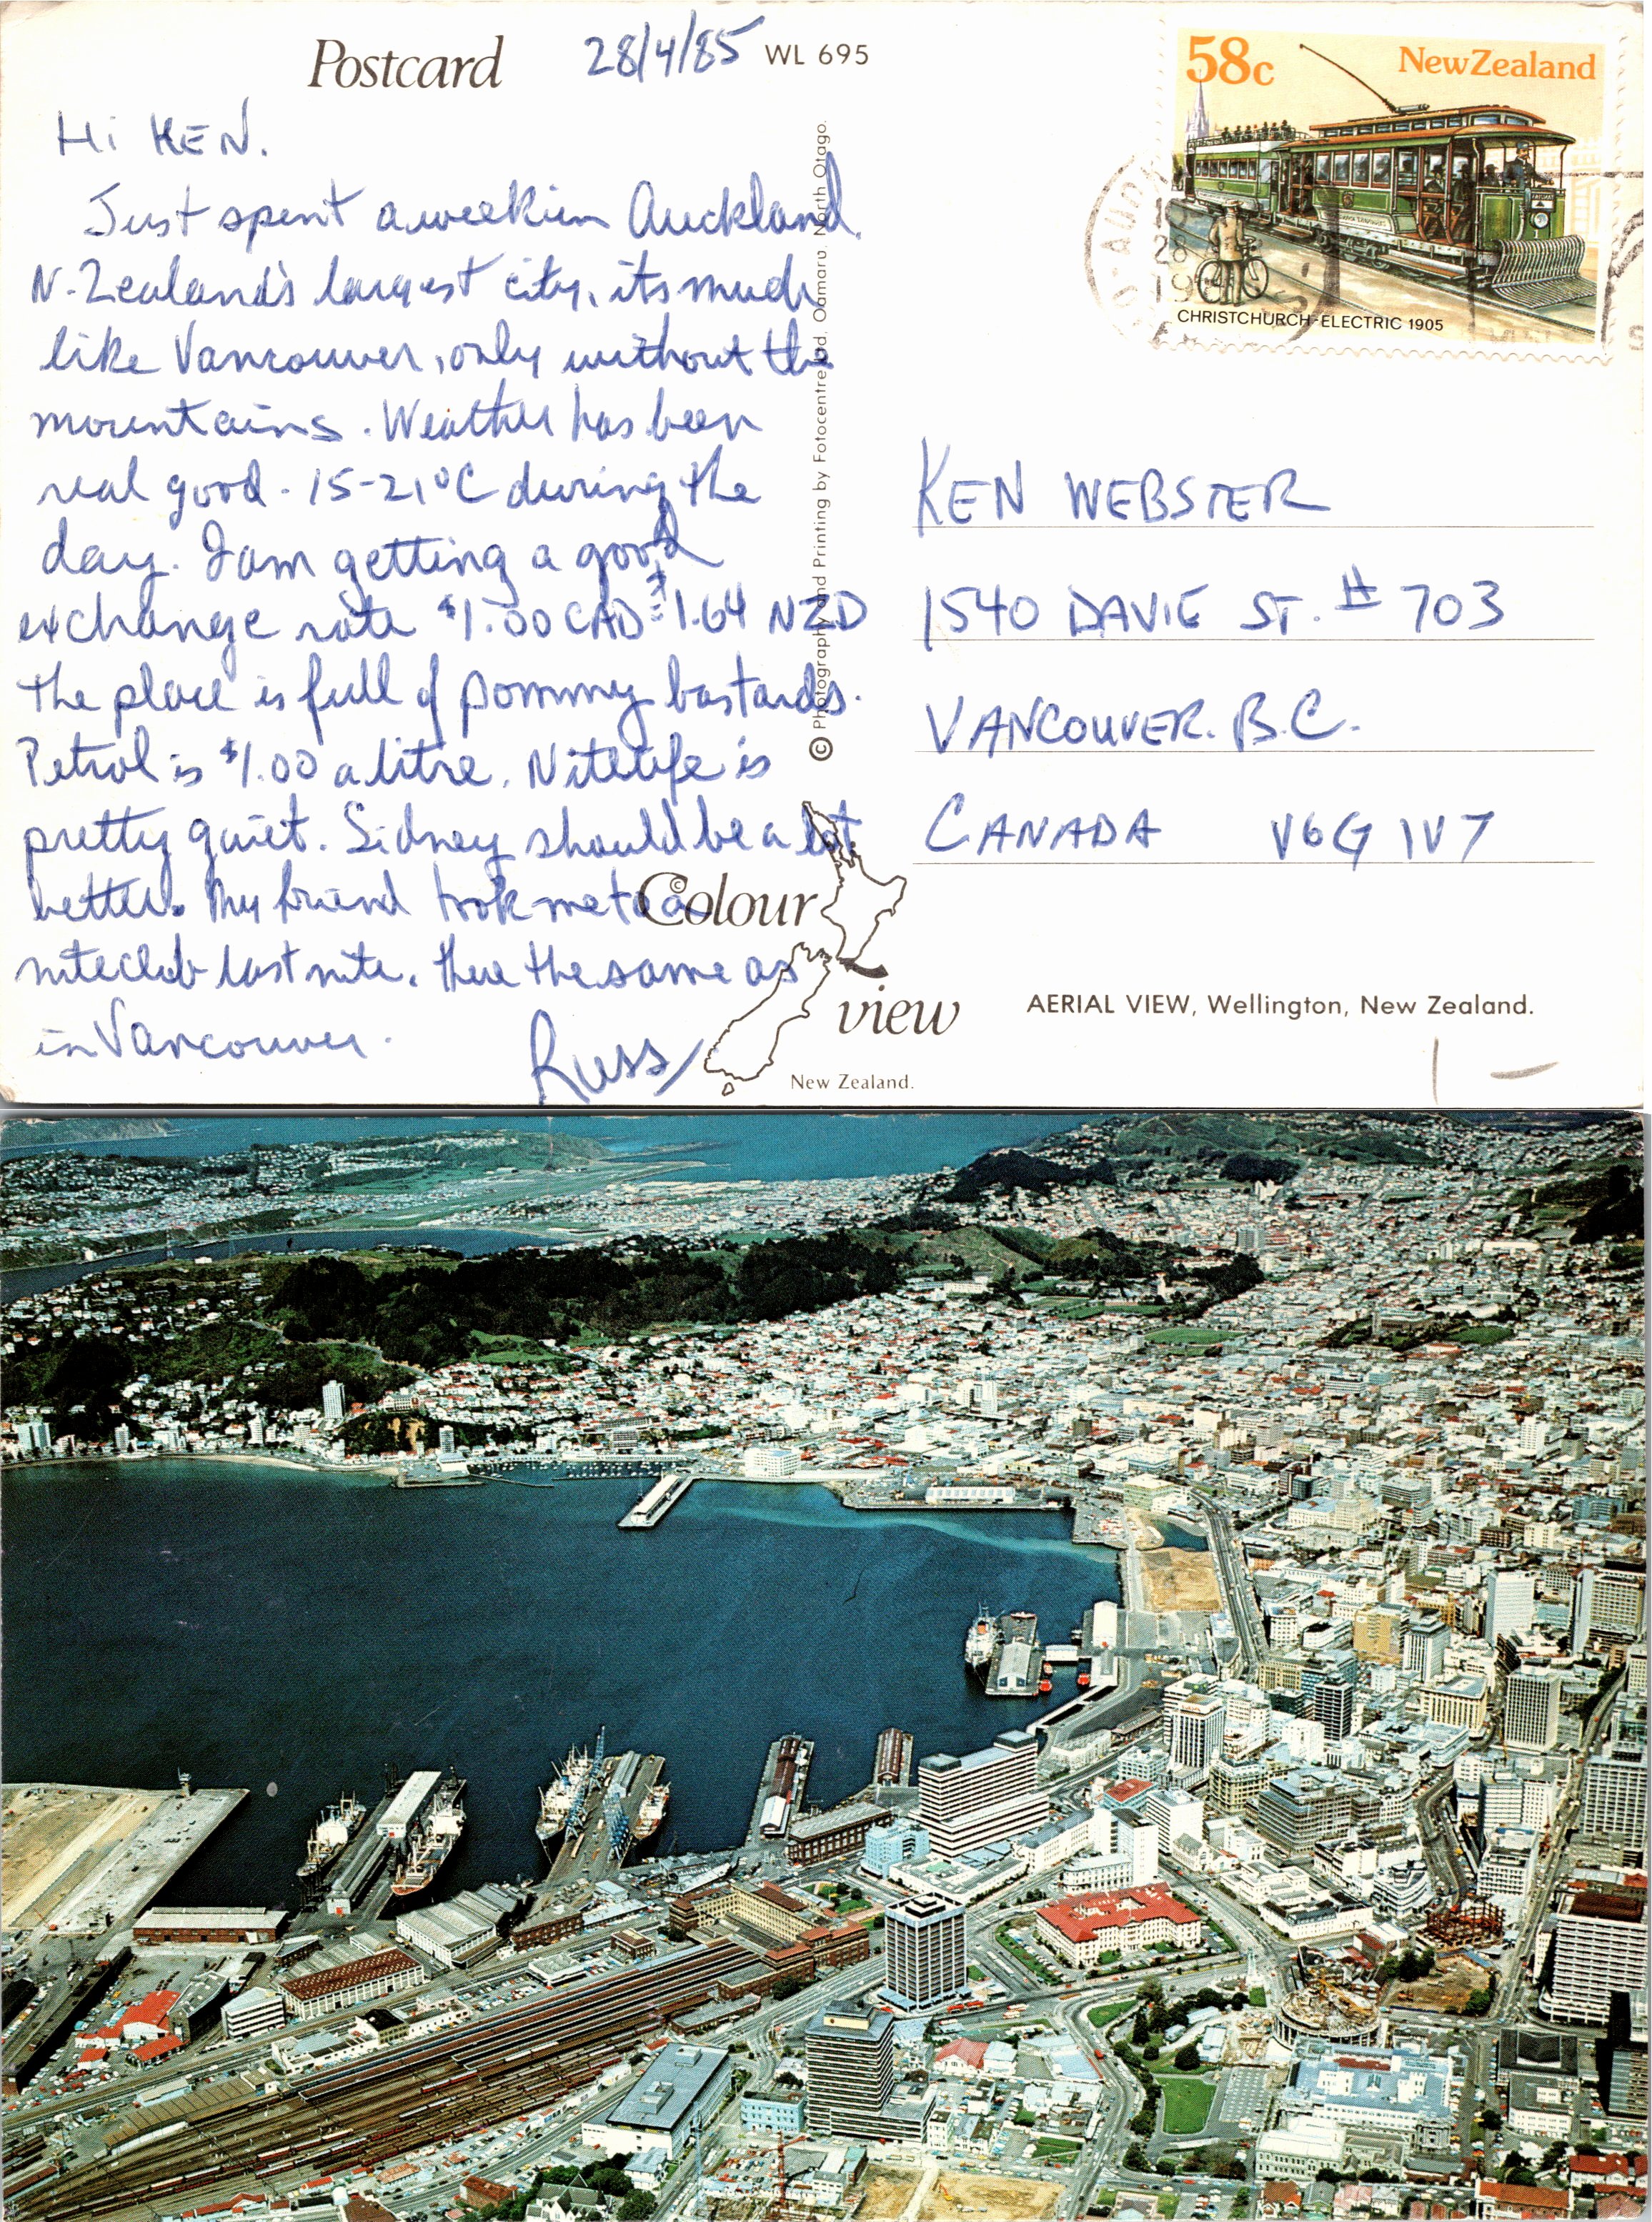 Postcard
28/4/85
WL 695
Hi KEN.
Just spent a week in Auckland.
N-Zealand's largest city, its much
like Vancouver, only without the
mountains. Weather has been
real good. 15-21°C during the
day. I am getting a good
exchange rate $1.00 CAD = $1.64 NZD
The place is full of pommy bastards.
Petrol is $1.00 a litre. Nitelife is
pretty quiet. Sidney should be a lot
better. My friend took me to a
niteclub last nite. There the same as
in Vancouver.
Russ
© Photography and Printing by Fotocentre Ltd, Oamaru, North Otago.
58c
New Zealand
CHRISTCHURCH-ELECTRIC 1905
28
KEN WEBSTER
1540 DAVIE ST. # 703
VANCOUVER. B.C.
CANADA V6G 1V7
© Colour
view
New Zealand.
AERIAL VIEW, Wellington, New Zealand.